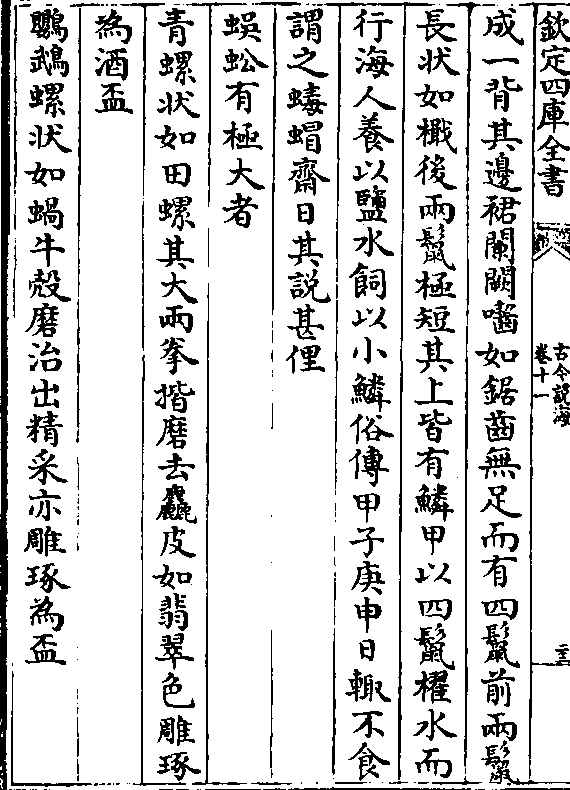 欽定四庫全書
古今説海
卷十一
二十三
成一背其邊裙闌闕嚙如鋸齒無足而有四鬛前兩鬛
長状如檝後兩鬛極短其上皆有鱗甲以四鬛櫂水而
行海人養以鹽水飼以小鱗俗傳甲子庚申日輙不食
謂之蝳蝐齋日其説甚俚
蜈蚣有極大者
青螺状如田螺其大兩拳揩磨去麤皮如翡翠色雕琢
為酒盃
鸚鵡螺状如蝸牛殻磨治出精采亦雕琢為盃